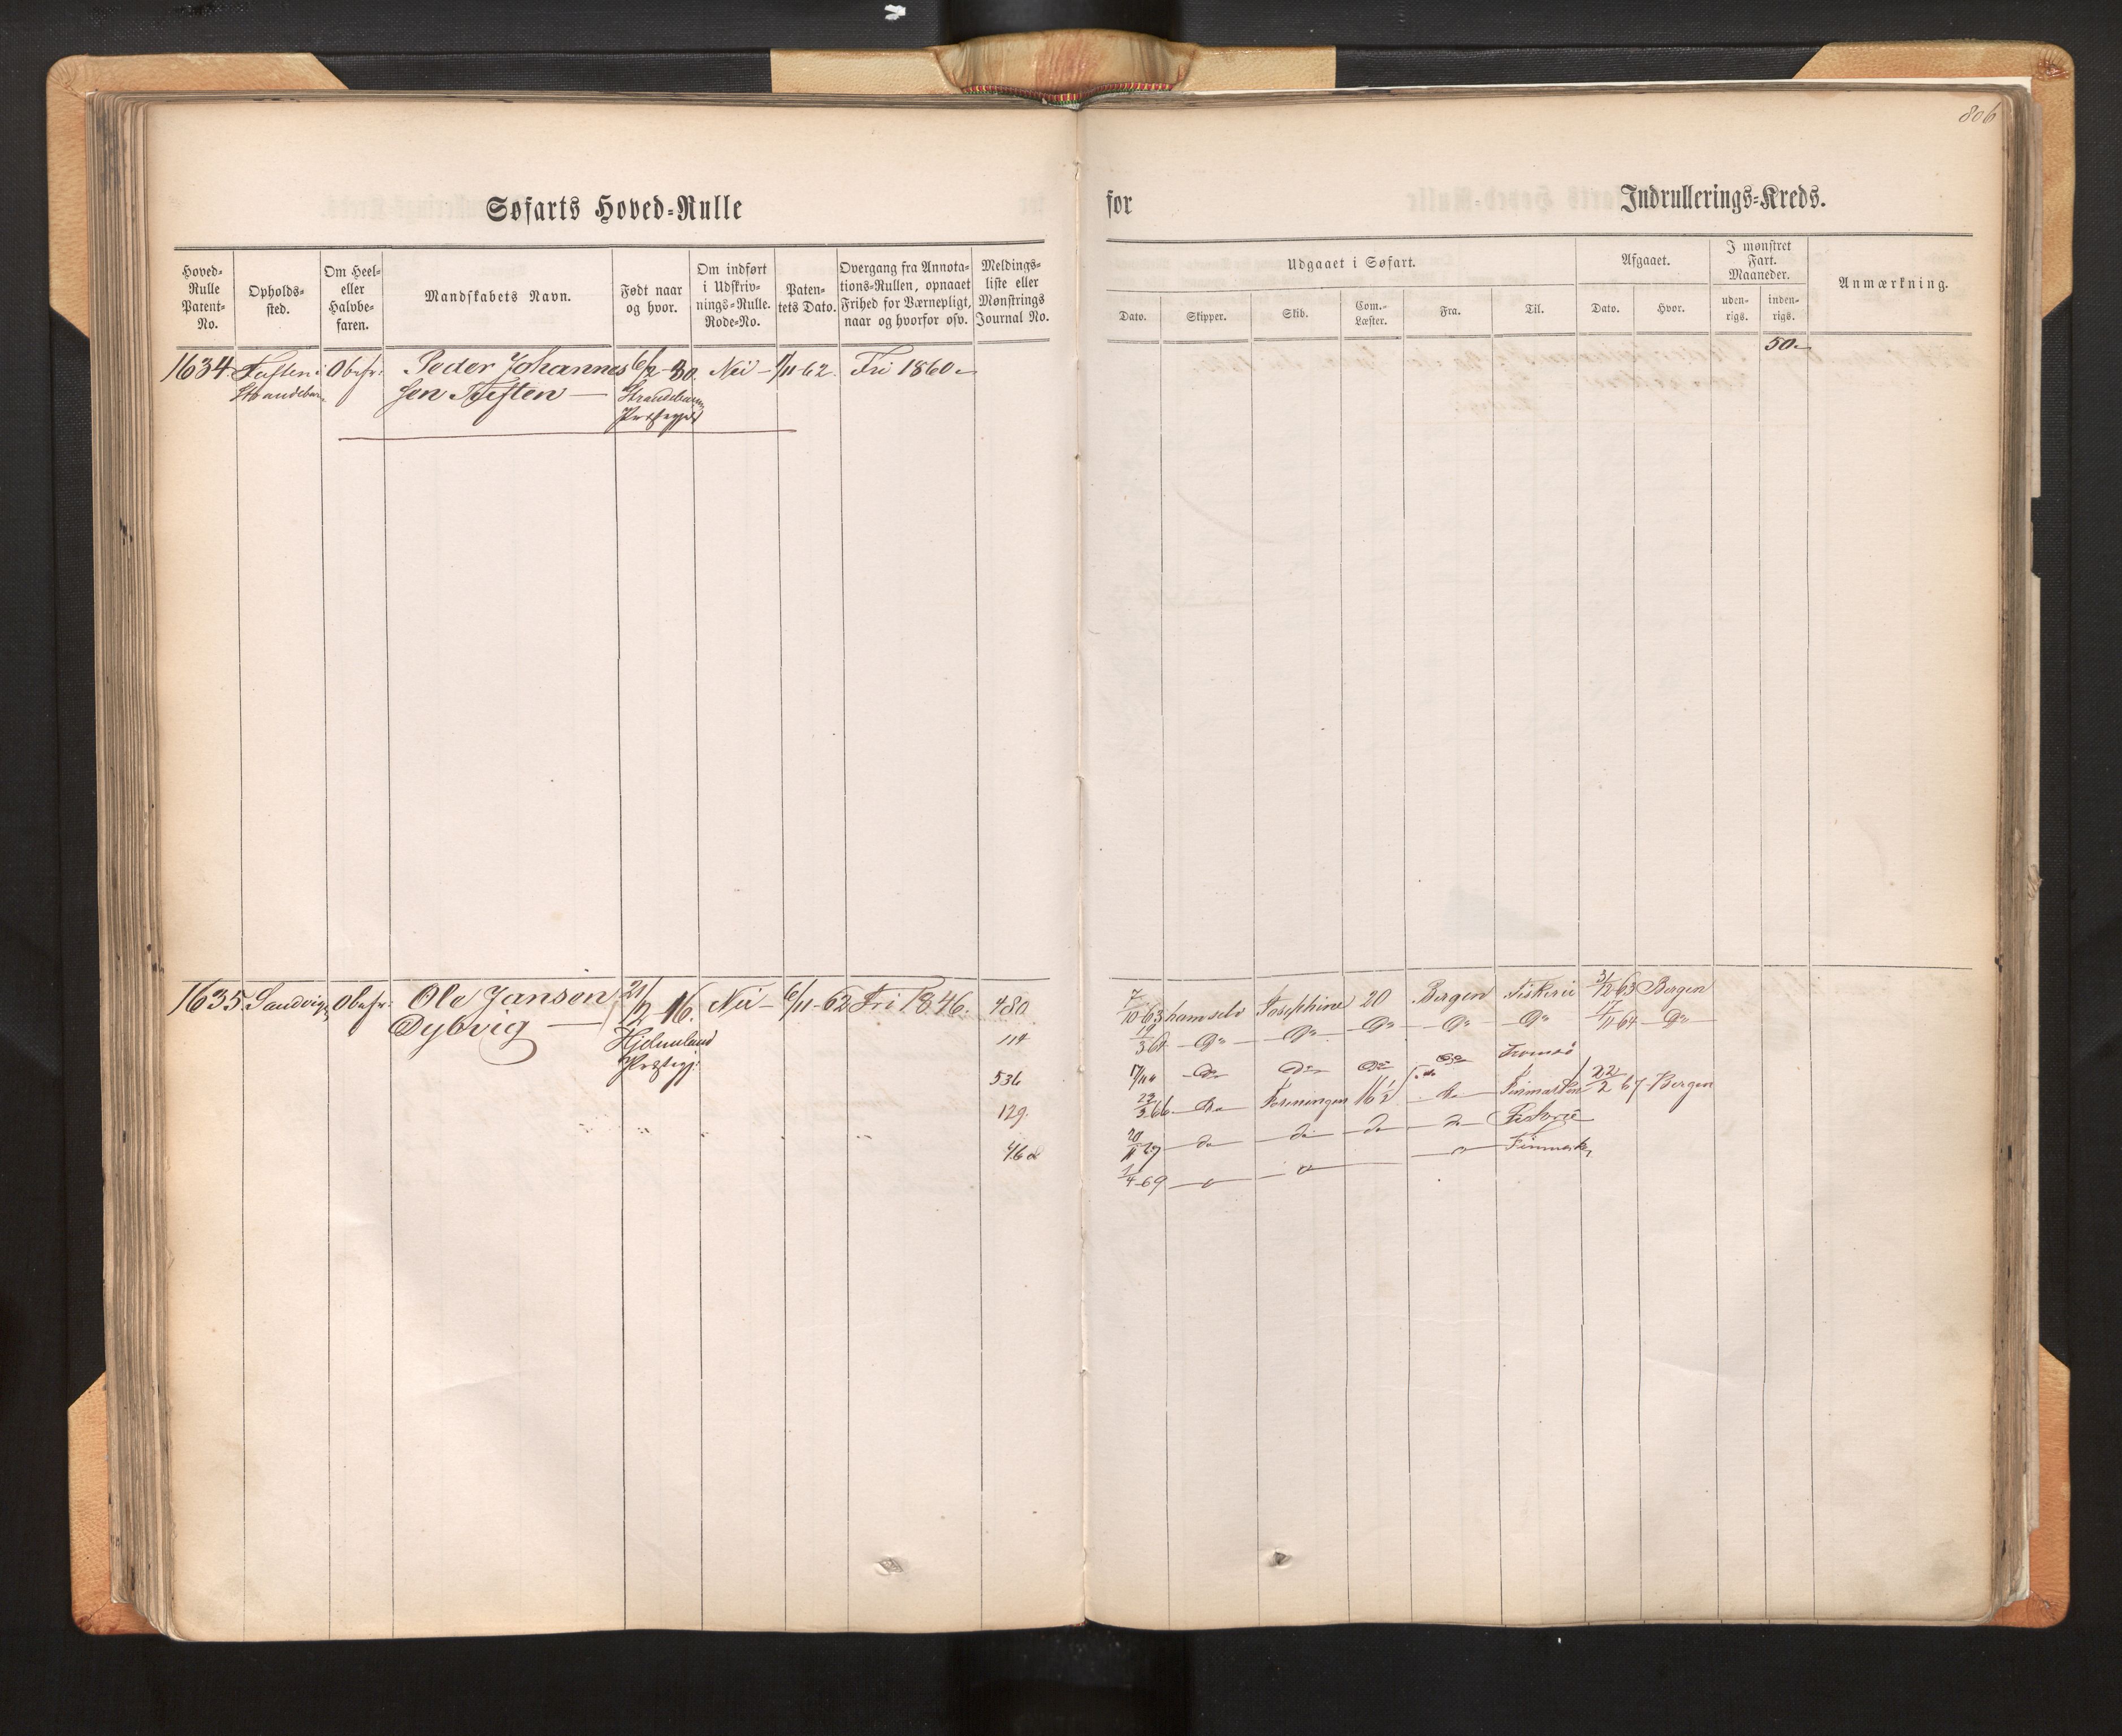 806
Søfarts Hoved-Rulle
for
Indrullerings-Kreds.
Hoved-
Rulle
Patent-
No.
Opholds-
sted.
Om Heel-
eller
Halvbe-
faren.
Mandskabets Navn.
Født naar
og hvor.
Om indført
i Udskriv-
nings-Rulle.
Rode-No.
Paten-
tets Dato.
Overgang fra Annota-
tions-Rullen, opnaaet
Frihed for Værnepligt,
naar og hvorfor osv.
Meldings-
liste eller
Mønstrings
Journal No.
Udgaaet i Søfart.
Dato.
Skipper.
Skib.
Com.-
Læster.
Fra.
Til.
Afgaaet.
Dato.
Hvor.
I mønstret
Fart.
Maaneder.
uden-
rigs.
inden-
rigs.
Anmærkning.
1634. Obefr: Peder Johannes 6/2-30. Nei - 62. Fri 1860
Strandebar. sen Strandebarm
Præstegjeld
50
1635. Sandvigen Obefr: Ole Jansen 21/12 16. Nei - 6/11-62 Fri 1846. 480
Dybvig
Hjelmeland
Præstegj:
114
536
129.
468
7/10-63 ham selv Josephine 20 Bergen Fiskerie 31/12-63 Bergen
19/3 64 - Do - - Do - - Do - - Do - - Do 17/11 64 - Do -
- Do - Do - Do Do Tromsø
23/3 66 - do Foreningen 16 1/2 - do - Finmarken 22/2 67 - Bergen
- do - - do - - do - - do - Fiskerie
1/4-69 - " - - " - - " - Finmarken